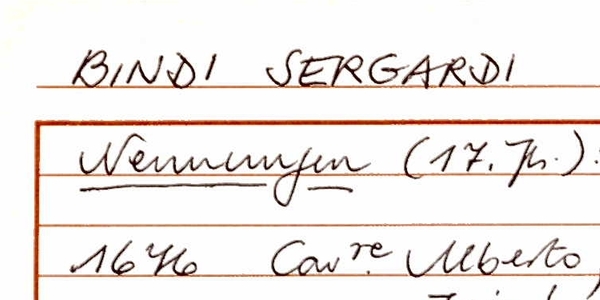 BINDI SERGARDI
Nennungen (17. Jh.):
1676 Cavre. Alberto,